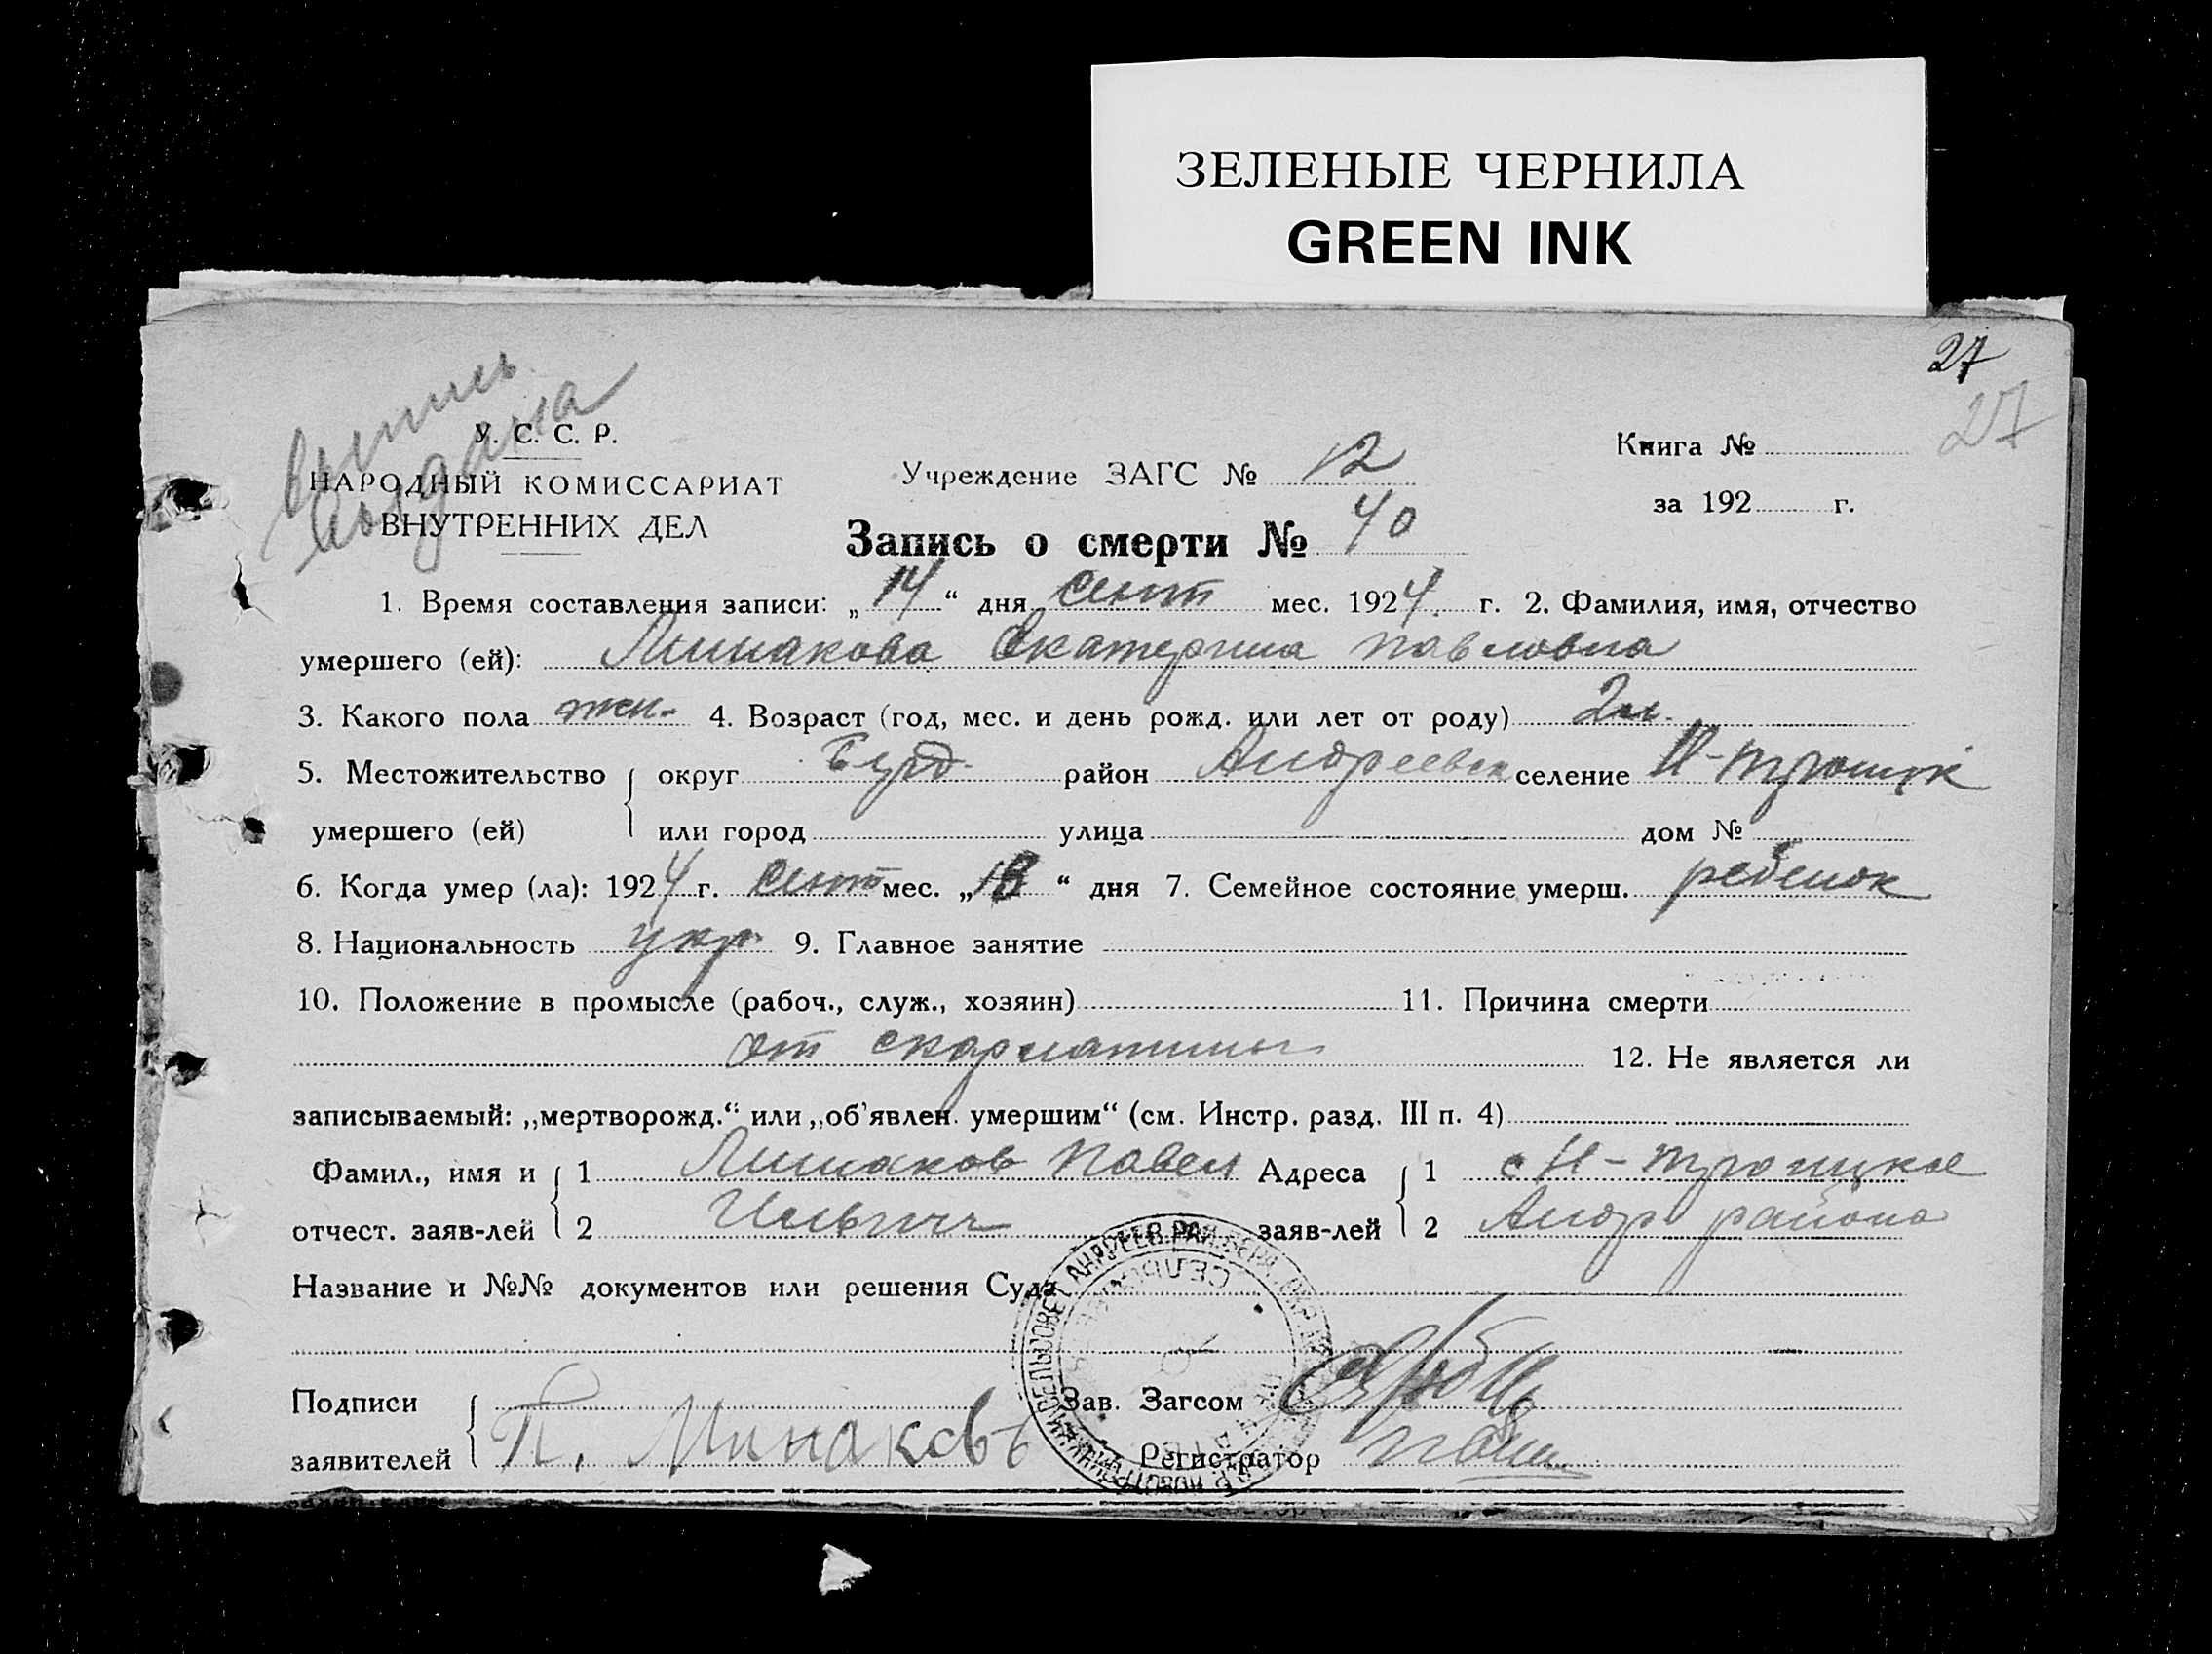 ЗЕЛЕНЫЕ ЧЕРНИЛА
GREEN INK
27
27
выпись
выдана
У. С. С. Р.
НАРОДНЫЙ КОМИССАРИАТ
ВНУТРЕННИХ ДЕЛ
Учреждение ЗАГС № 12
Книга №
за 192 г.
Запись о смерти № 40
1. Время составления записи: „ 14 “ дня сент мес. 1924 г. 2. Фамилия, имя, отчество
умершего (ей): Минакова Екатерина Павловна
3. Какого пола жен. 4. Возраст (год, мес. и день рожд. или лет от роду) 2
5. Местожительство округ район Андреевск селение Н-Троицк
умершего (ей) или город улица дом №
6. Когда умер (ла): 1924 г. сент мес. „ “ дня 7. Семейное состояние умерш. ребенок
8. Национальность укр. 9. Главное занятие
10. Положение в промысле (рабоч., служ., хозяин) 11. Причина смерти
от скарлатины 12. Не является ли
записываемый: „мертворожд.“ или „об'явлен. умершим“ (см. Инстр. разд. III п. 4)
Фамил., имя и 1 Минаков Павел Адреса 1 с Н-Троицкое
отчест. заяв-лей 2 Ильич заяв-лей 2 Андр района
Название и №№ документов или решения Суда
Подписи Зав. Загсом
заявителей П. Минаковъ Регистратор
СЕЛЬСОВЕТ АНДРЕЕВ. РАЙ. БЕРД. ОКР.